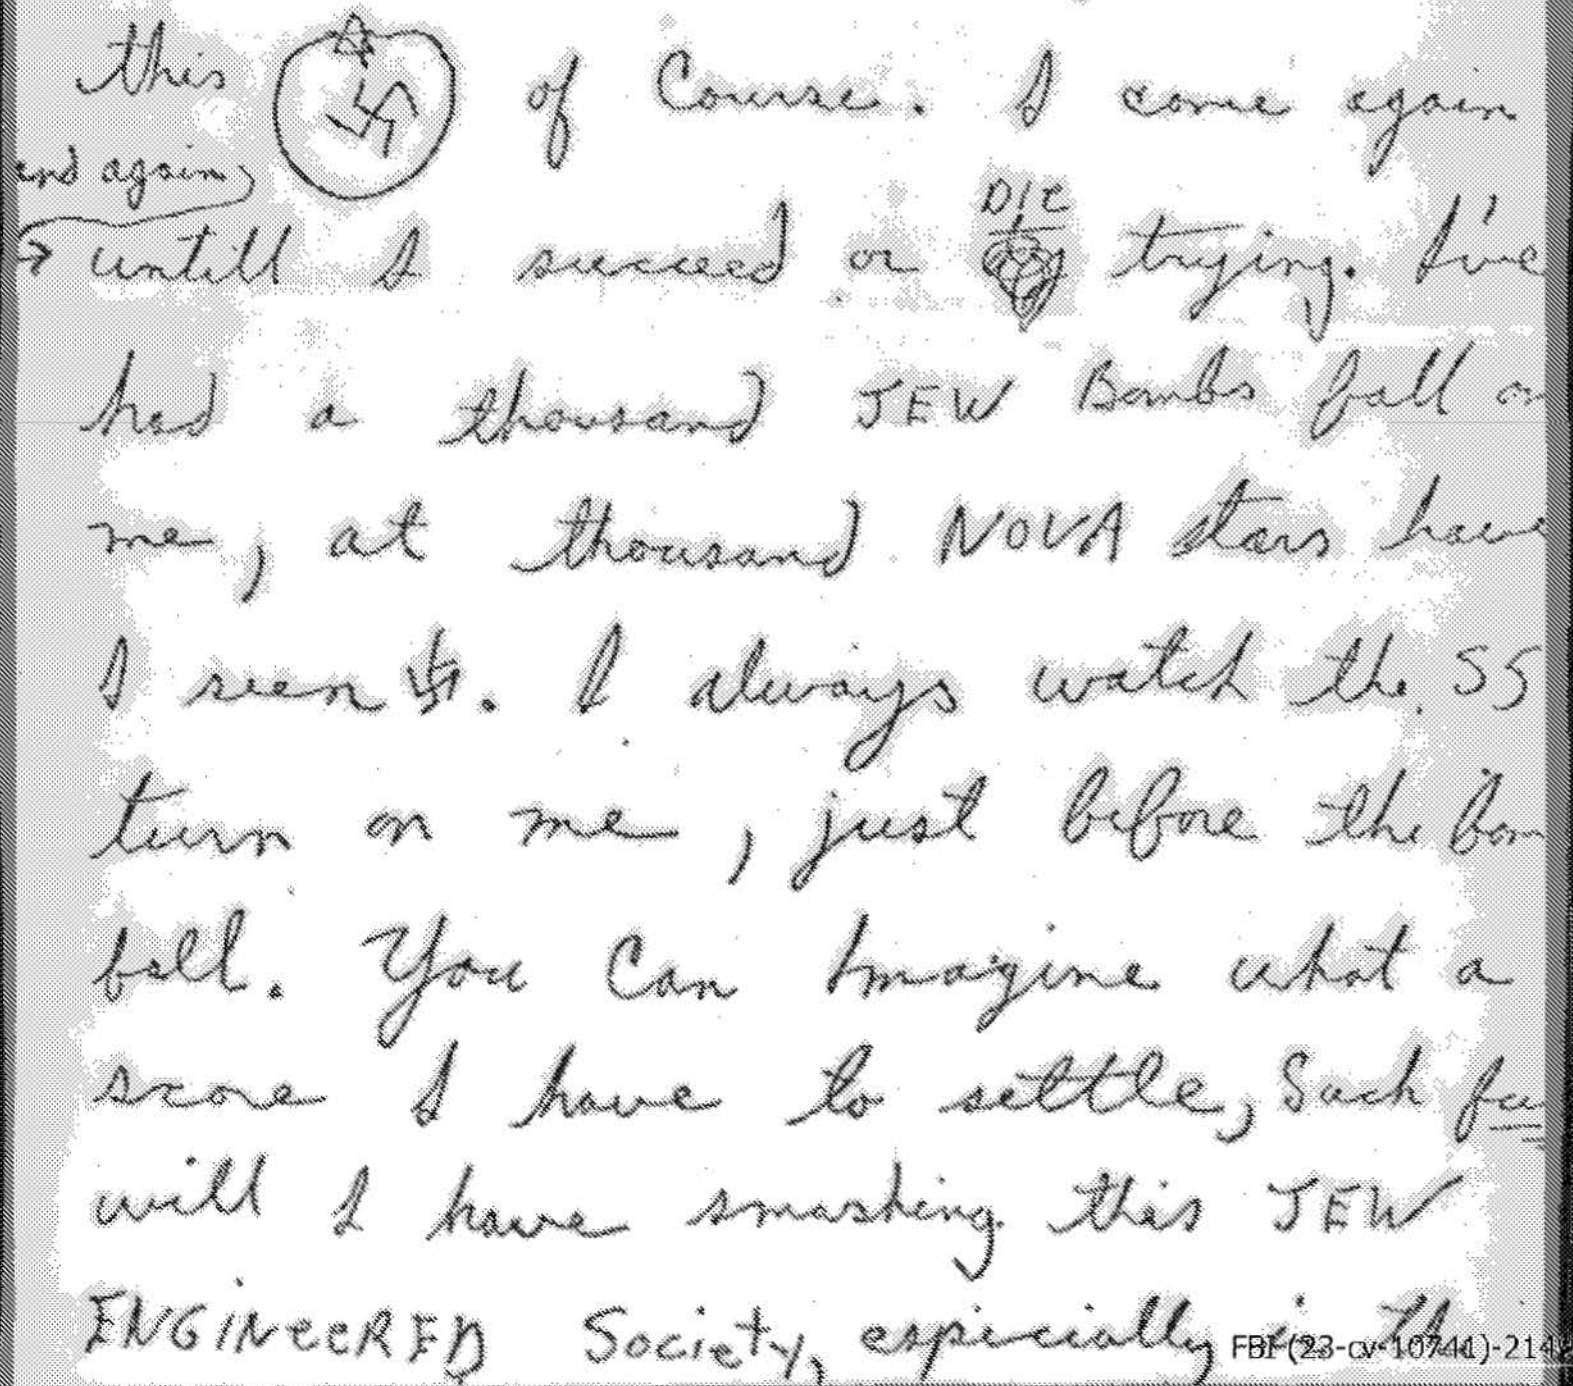 this of Course. I come again
and again,
→ untill I succeed or Die trying. I've
had a thousand JEW Bombs fall on
me, at thousand NOVA stars have
I seen 卐. I always watch the SS
turn on me, just before the
fall. You Can Imagine what a
score I have to settle, Such
will I have smashing this JEW
ENGINeeRED Society, especially in
FBI (23-cv-10741)-214